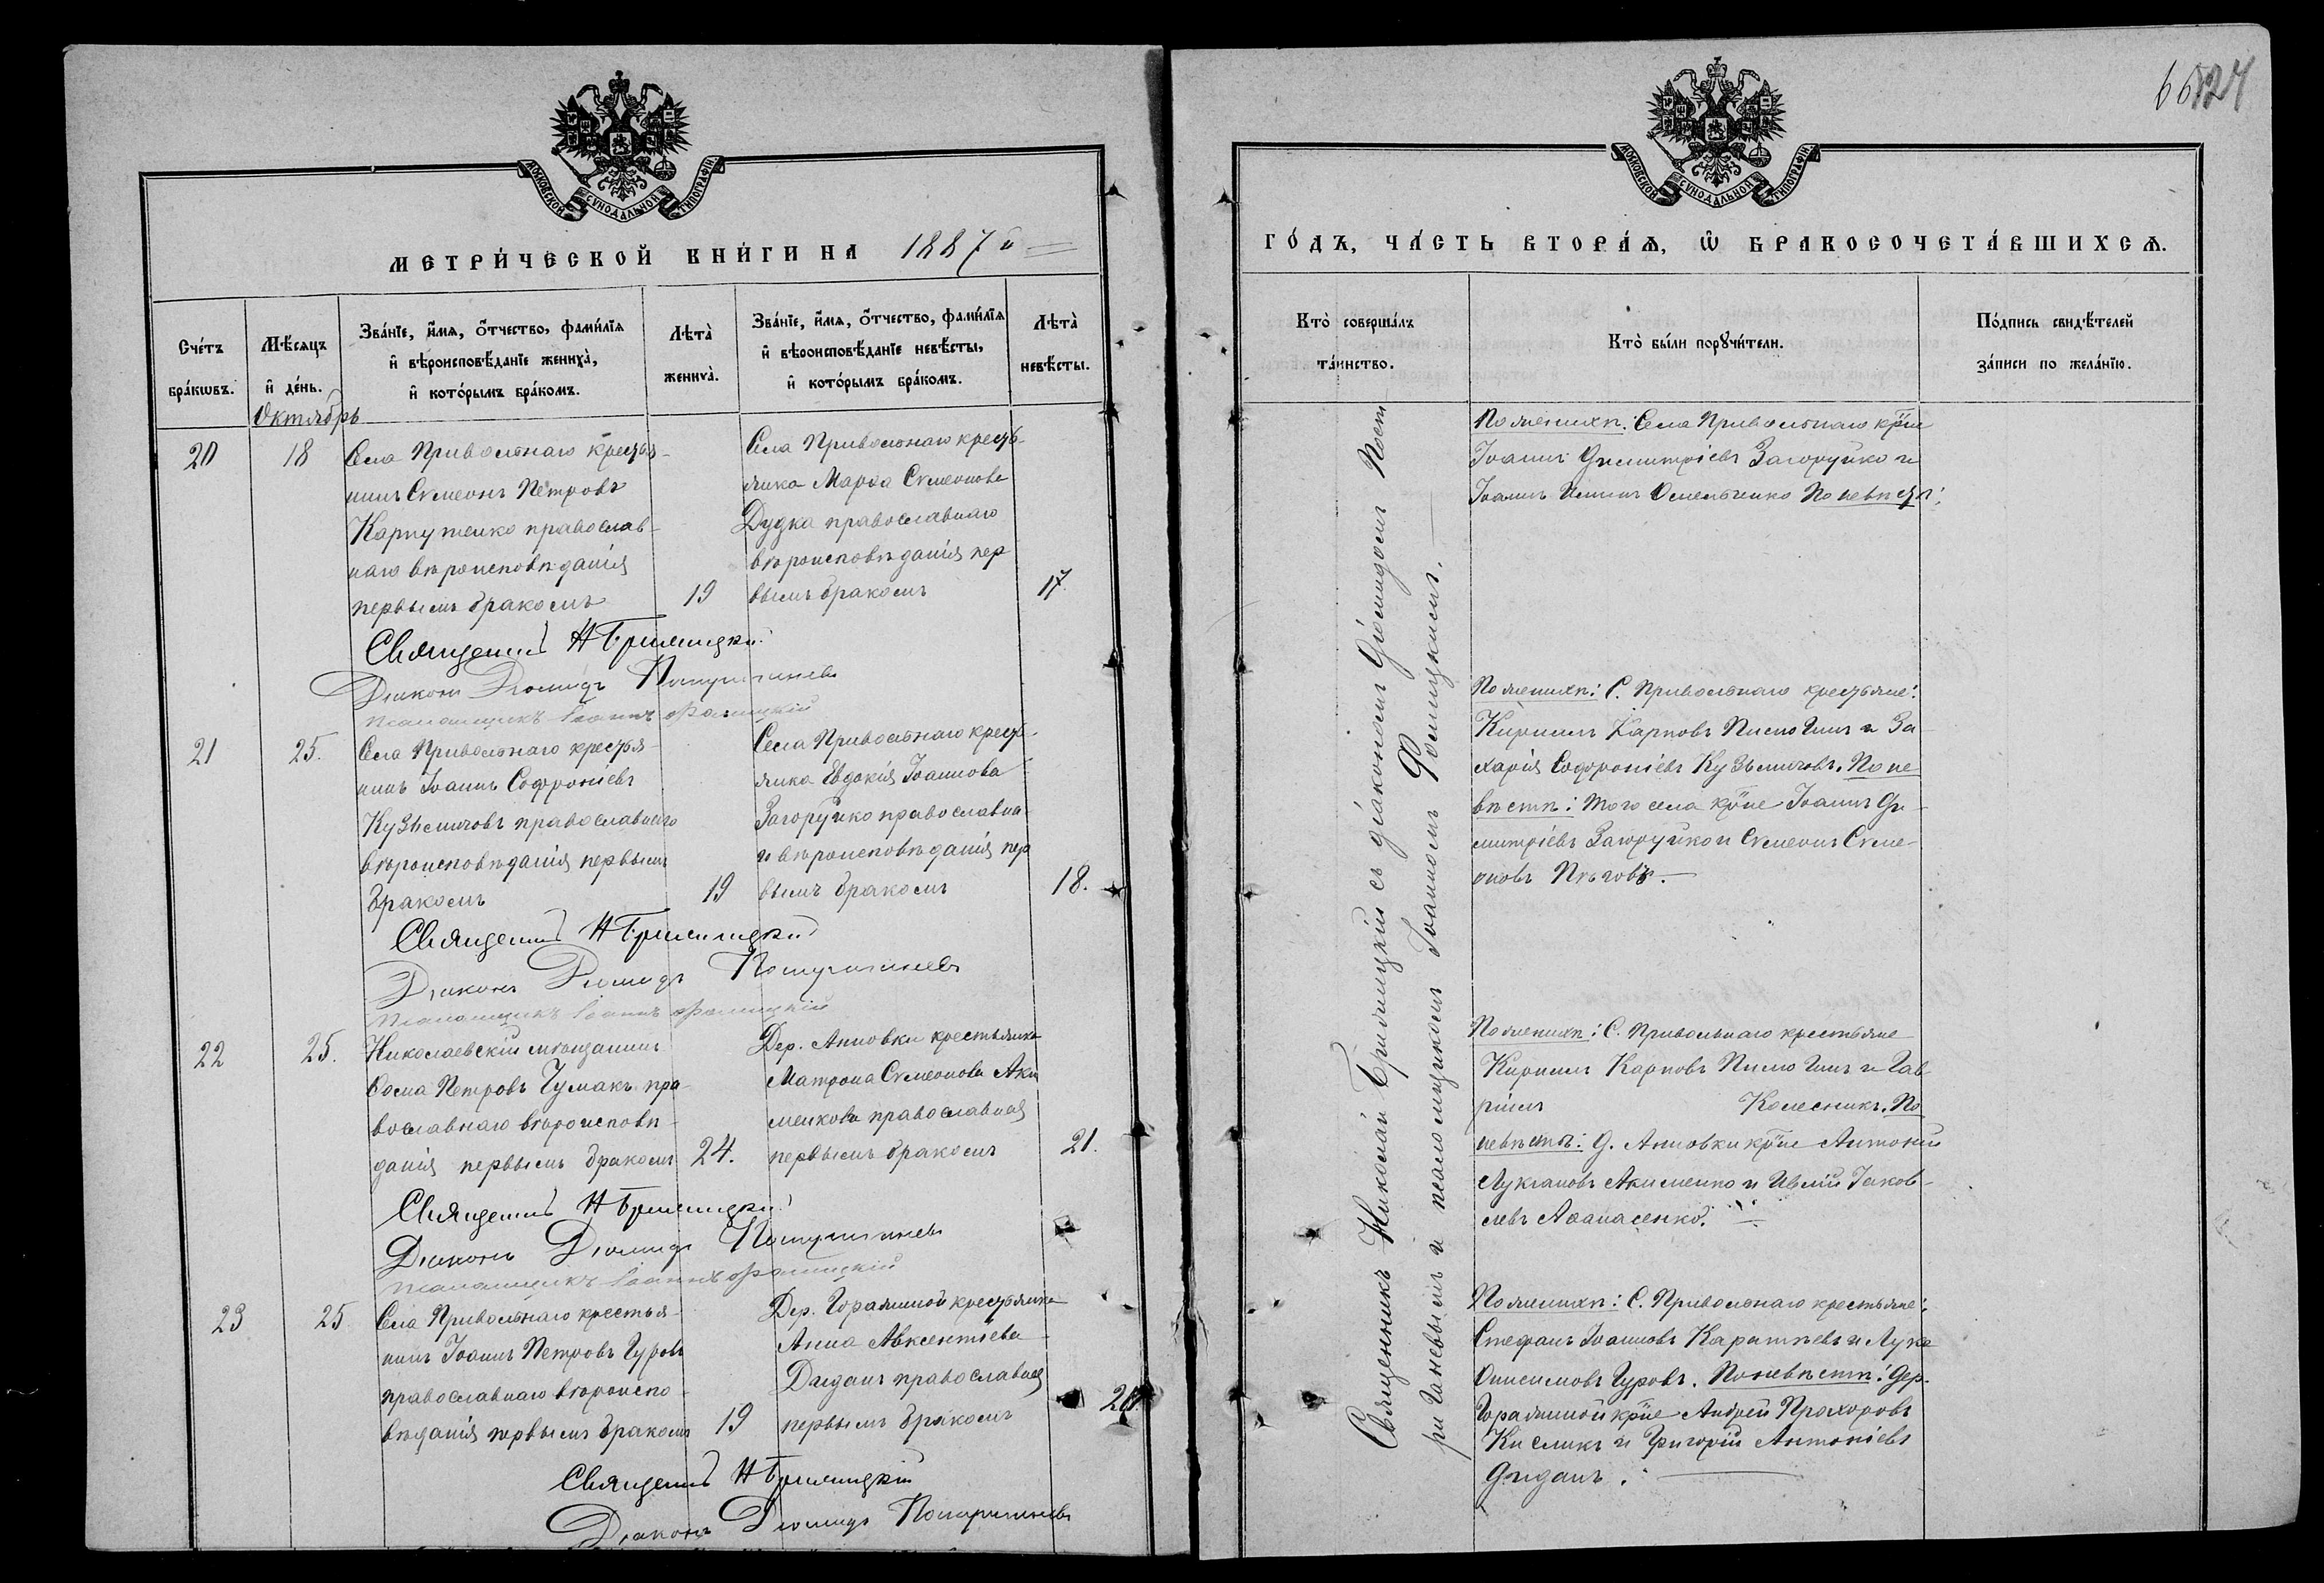 66 127
МОСКОВСКОЙ СѴНОДАЛЬНОЙ ТИПОГРАФІИ
МЕТРИ́ЧЕСКОЙ КНИ́ГИ НА 1887й
Сче́тъ бра́кѡвъ.
Мѣ́сяцъ и҆ де́нь.
Зва́нїе, и҆́мѧ, ѻ҆́тчество, фамѝлїѧ
и҆ вѣроисповѣ́данїе жениха̀,
и҆ кото́рымъ бра́комъ.
Лѣта̀
жениха̀.
Зва́нїе, и҆́мѧ, ѻ҆́тчество, фамѝлїѧ
и҆ вѣроисповѣ́данїе невѣ́сты,
и҆ кото́рымъ бра́комъ.
Лѣта̀
невѣ́сты.
Октябрь
20
18
Села Привольнаго крестья-
нинъ Сѵмеонъ Петровъ
Карпутенко православ-
наго вѣроисповѣданія
первымъ бракомъ
19
Села Привольнаго кресть-
янка Марѳа Сѵмеонова
Дудка православнаго
вѣроисповѣданія пер
вымъ бракомъ
17.
Священникъ Н Бржницкій
Діаконъ Діомидъ
Псаломщикъ Іоаннъ Фомицкій
21
25.
Села Привольнаго крестья-
нинъ Іоаннъ Софроніевъ
Кузьмичовъ православнаго
вѣроисповѣданія первымъ
бракомъ
19
Села Привольнаго кресть-
янка Евдокія Іоаннова
Загоруйко православна-
го вѣроисповѣданія пер
вымъ бракомъ
18.
Священникъ Н
Діаконъ Діомидъ
Псаломщикъ Іоаннъ Фомицкій
22
25.
Николаевскій мѣщанинъ
Косма Петровъ Чумакъ пра-
вославнаго вѣроисповѣ-
данія первымъ бракомъ
24.
Дер. Анновки крестьянка
Матрона Сѵмеонова Аки
менкова православная
первымъ бракомъ
21.
Священникъ Н
Діаконъ Діомидъ
Псаломщикъ Іоаннъ Фомицкій
23
25
Села Привольнаго крестья-
нинъ Іоаннъ Петровъ Гуровъ
православнаго вѣроиспо-
вѣданія первымъ бракомъ
19
Дер. Горожиной крестьянка
Анна Авксентіева
православная
первымъ бракомъ
20.
Священникъ Н
Діаконъ Діомидъ
МОСКОВСКОЙ СѴНОДАЛЬНОЙ ТИПОГРАФІИ
ГО́ДЪ, ЧА́СТЬ ВТОРА́Ѧ, Ѡ҆ БРАКОСОЧЕТА́ВШИХСѦ.
Кто̀ соверша́лъ
та́инство.
Кто̀ бы́ли порꙋчи́тели.
По́дпись свидѣ́телей
за́писи по жела́нїю.
Священникъ Николай съ діакономъ Діомидомъ
и псаломщикомъ Іоанномъ Фомицкимъ.
По женихѣ: Села Привольнаго кр̃не
Іоаннъ Димитріевъ Загоруйко и
Іоаннъ Омельченко По невѣстѣ:
По женихѣ: С. Привольнаго крестьяне:
Кириллъ Карповъ и За-
харія Софроніевъ Кузьмичовъ. По не
вѣстѣ: того села кр̃не Іоаннъ Ди-
митріевъ Загоруйко и Сѵмеонъ Сѵме-
оновъ
По женихѣ: С. Привольнаго крестьяне
Кириллъ Карповъ и Гав
ріилъ Колесникъ. По
невѣстѣ: д. Анновки кр̃не Антоній
Лукіановъ Акименко и Іаков-
левъ Аѳанасенко.
По женихѣ: С. Привольнаго крестьяне:
Стефанъ Іоанновъ Каратѣевъ и Лука
Онисимовъ Гуровъ. По невѣстѣ: дер.
Горожиной кр̃не Андрей Прохоровъ
Кислякъ и Григорій Антоніевъ